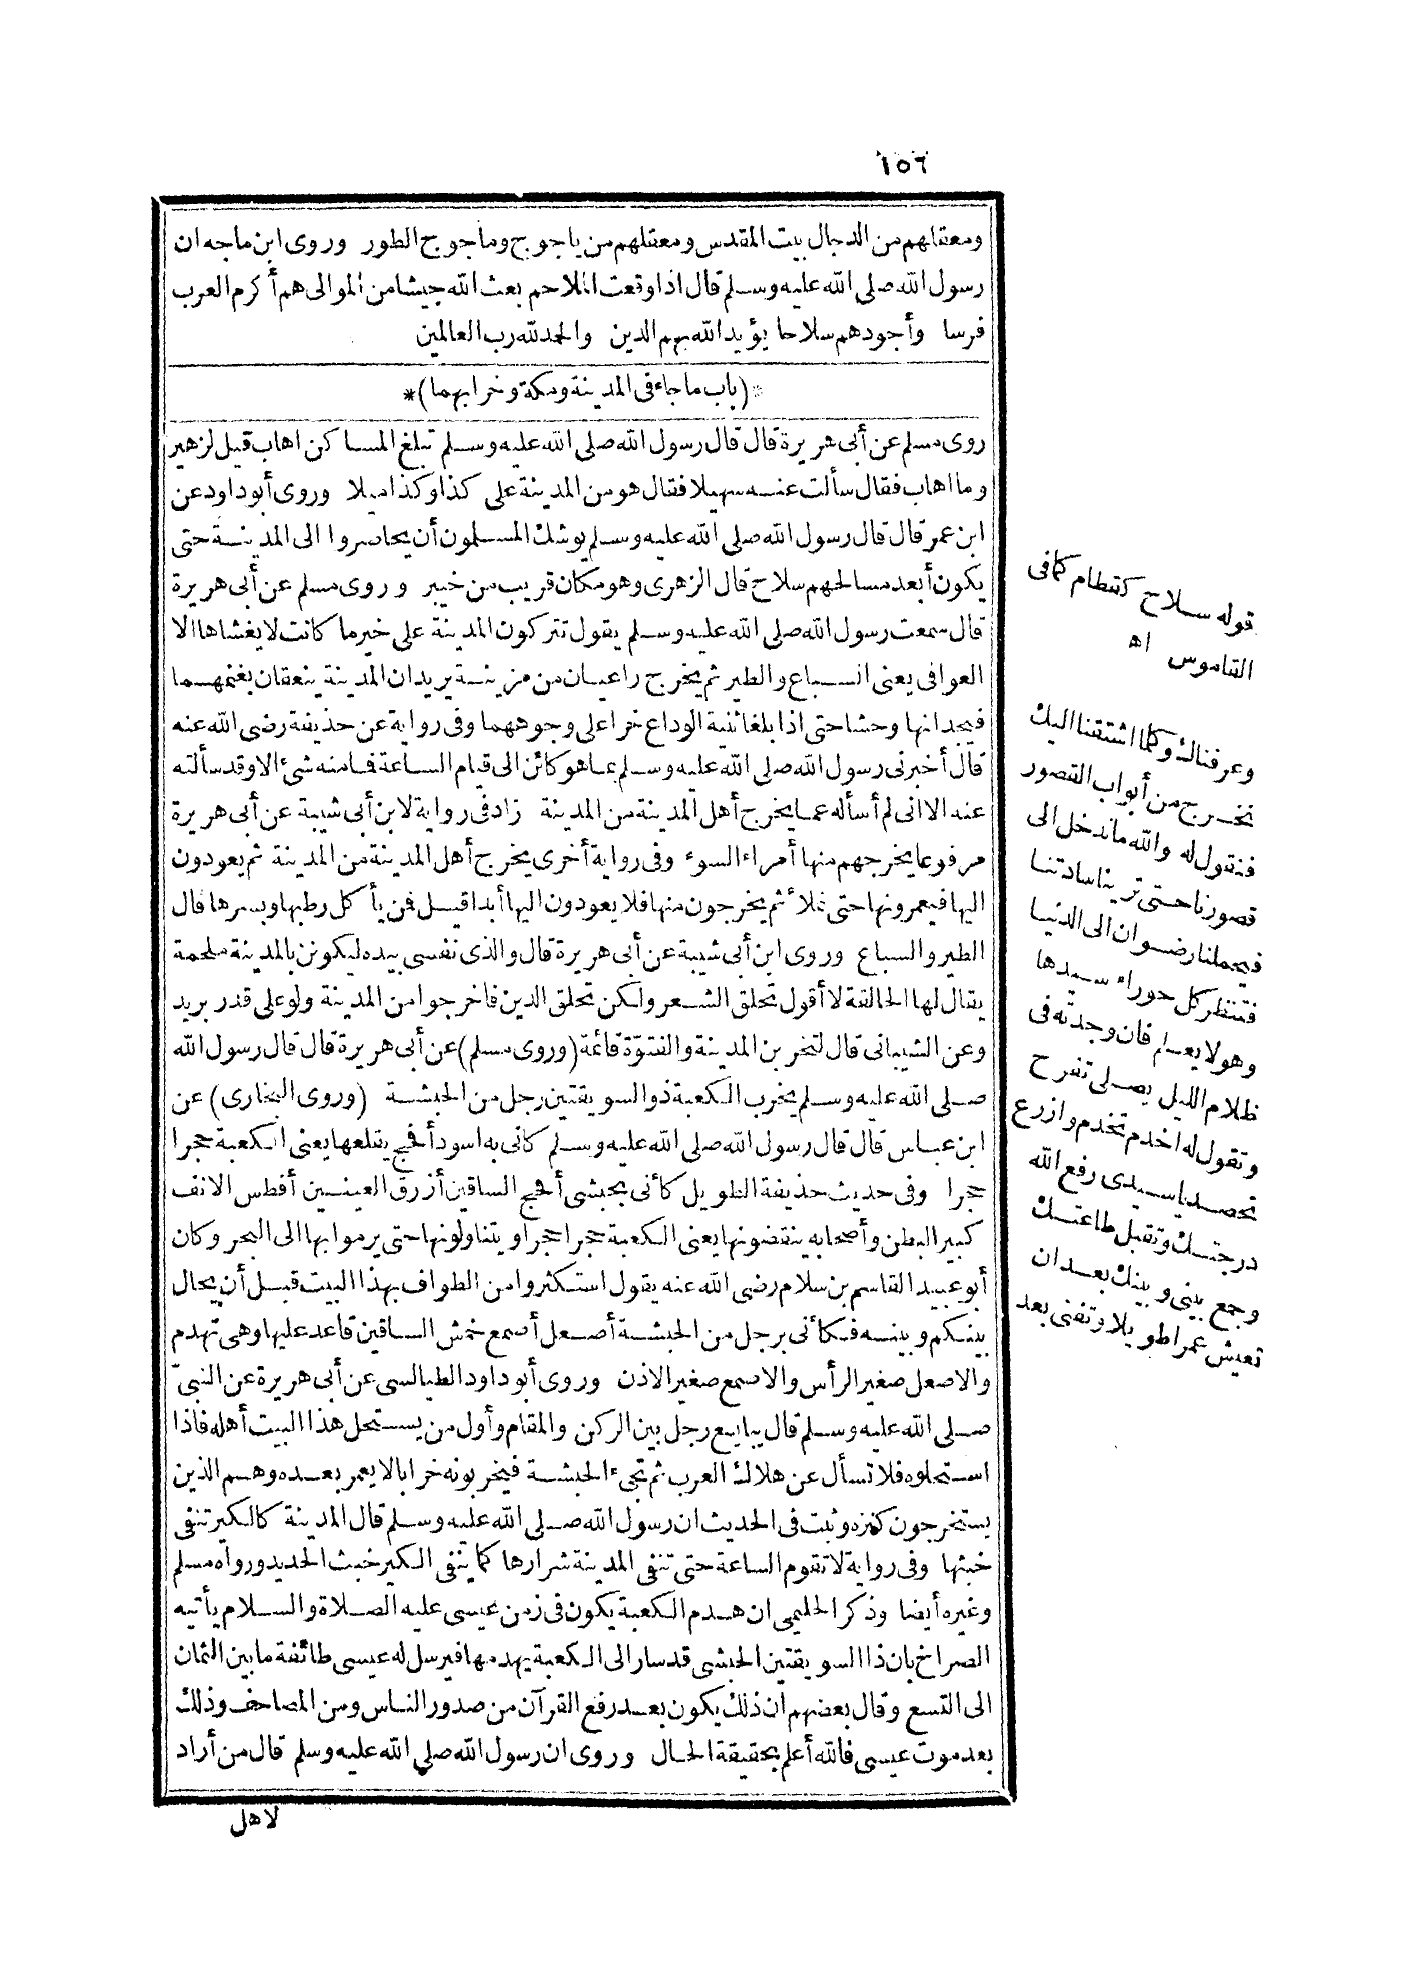 ١٥٦
ومعقلهم من الدجال بيت المقدس ومعقلهم من ياجوج وماجوج الطور وروى ابن ماجه ان
رسول الله صلى الله عليه وسلم قال اذا وقعت الملاحم بعث الله جيشا من الموالى هم أكرم العرب
فرسا وأجودهم سلاحا يؤيد الله بهم الدين والحمد لله رب العالمين
*(باب ماجاء فى المدينة ومكة وخرابهما)*
روى مسلم عن أبى هريرة قال قال رسول الله صلى الله عليه وسلم تبلغ المساكن اهاب قيل لزهير
وما اهاب فقال سألت عنه سهيلا فقال هو من المدينة على كذا وكذا ميلا وروى أبو داود عن
ابن عمر قال قال رسول الله صلى الله عليه وسلم يوشك المسلمون أن يحاصروا الى المدينة حتى
يكون أبعد مسالحهم سلاح قال الزهرى وهو مكان قريب من خيبر وروى مسلم عن أبى هريرة
قال سمعت رسول الله صلى الله عليه وسلم يقول تتركون المدينة على خير ما كانت لا يغشاها الا
العوافى يعنى السباع والطير ثم يخرج راعيان من مزينة يريدان المدينة ينعقان بغنمهما
فيجدانها وحشا حتى اذا بلغا ثنية الوداع خرا على وجوههما وفى رواية عن حذيفة رضى الله عنه
قال أخبرنى رسول الله صلى الله عليه وسلم بما هو كائن الى قيام الساعة فما منه شئ الا وقد سألته
عنه الا انى لم أسأله عما يخرج أهل المدينة من المدينة زاد فى رواية لابن أبى شيبة عن أبى هريرة
مرفوعا يخرجهم منها أمراء السوء وفى رواية أخرى يخرج أهل المدينة من المدينة ثم يعودون
اليها فيعمرونها حتى تملأ ثم يخرجون منها فلا يعودون اليها أبدا قيل فمن يأكل رطبها وبسرها قال
الطير والسباع وروى ابن أبى شيبة عن أبى هريرة قال والذى نفسى بيده ليكونن بالمدينة ملحمة
يقال لها الحالقة لا أقول تحلق الشعر ولكن تحلق الدين فاخرجوا من المدينة ولو على قدر بريد
وعن الشيبانى قال لتخربن المدينة والفتوّة قائمة (وروى مسلم) عن أبى هريرة قال قال رسول الله
صلى الله عليه وسلم يخرب الكعبة ذو السويقتين رجل من الحبشة (وروى البخارى) عن
ابن عباس قال قال رسول الله صلى الله عليه وسلم كانى به اسود أفحج يقلعها يعنى الكعبة حجرا
حجرا وفى حديث حذيفة الطويل كأنى بحبشى أفحج الساقين أزرق العينين أفطس الانف
كبير البطن وأصحابه ينقضونها يعنى الكعبة حجرا حجرا ويتناولونها حتى يرموا بها الى البحر وكان
أبو عبيد القاسم بن سلام رضى الله عنه يقول استكثروا من الطواف بهذا البيت قبل أن يحال
بينكم وبينه فكأنى برجل من الحبشة أصعل أصمع خمش الساقين قاعد عليها وهى تهدم
والاصعل صغير الرأس والاصمع صغير الاذن وروى أبو داود الطيالسى عن أبى هريرة عن النبىّ
صلى الله عليه وسلم قال يبايع رجل بين الركن والمقام وأول من يستحل هذا البيت أهله فاذا
استحلوه فلا تسأل عن هلاك العرب ثم تجىء الحبشة فيخربونه خرابا لا يعمر بعده وهم الذين
يستخرجون كنزه وثبت فى الحديث ان رسول الله صلى الله عليه وسلم قال المدينة كالكير تنفى
خبثها وفى رواية لا تقوم الساعة حتى تنفى المدينة شرارها كما ينفى الكير خبث الحديد ورواه مسلم
وغيره أيضا وذكر الحليمى ان هدم الكعبة يكون فى زمن عيسى عليه الصلاة والسلام يأتيه
الصراخ بان ذا السويقتين الحبشى قد سار الى الكعبة يهدمها فيرسل له عيسى طائفة ما بين الثمان
الى التسع وقال بعضهم ان ذلك يكون بعد رفع القرآن من صدور الناس ومن المصاحف وذلك
بعد موت عيسى فالله أعلم بحقيقة الحال وروى ان رسول الله صلى الله عليه وسلم قال من أراد
لاهل
قوله سلاح كقطام كما فى
القاموس اه
وعرفناك وكلما اشتقنا اليك
نخرج من أبواب القصور
فنقول له والله ما ندخل الى
قصورنا حتى ترينا سادتنا
فيحملنا رضوان الى الدنيا
فتنظر كل حوراء سيدها
وهو لا يعلم فان وجدته فى
ظلام الليل يصلى تفرح
وتقول له اخدم تخدم وازرع
تحصد ياسيدى رفع الله
درجتك وتقبل طاعتك
وجمع بينى وبينك بعد ان
تعيش عمرا طويلا وتفنى بعد